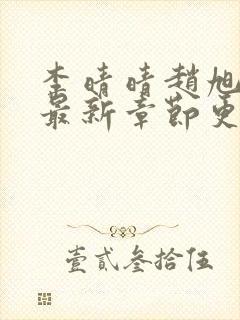 李晴晴趙旭
最新章節更
壹貳叁拾伍